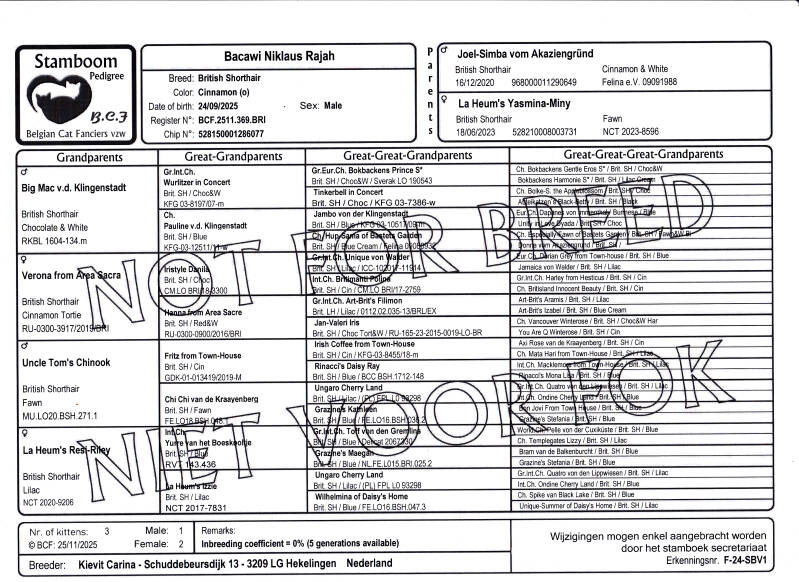 Stamboom
Pedigree
B.C.F
Belgian Cat Fanciers vzw
Bacawi Niklaus Rajah
Breed: British Shorthair
Color: Cinnamon (o)
Date of birth: 24/09/2025 Sex: Male
Register N°: BCF.2511.369.BRI
Chip N°: 528150001286077
Parents
♂ Joel-Simba vom Akaziengründ
British Shorthair Cinnamon & White
16/12/2020 968000011290649 Felina e.V. 09091988
♀ La Heum's Yasmina-Miny
British Shorthair Fawn
18/06/2023 528210008003731 NCT 2023-8596
Grandparents
♂
Big Mac v.d. Klingenstadt
British Shorthair
Chocolate & White
RKBL 1604-134.m
♀
Verona from Area Sacra
British Shorthair
Cinnamon Tortie
RU-0300-3917/2019/BRI
♂
Uncle Tom's Chinook
British Shorthair
Fawn
MU.LO20.BSH.271.1
♀
La Heum's Resi-Riley
British Shorthair
Lilac
NCT 2020-9206
Great-Grandparents
Gr.Int.Ch.
Wurlitzer in Concert
Brit. SH / Choc&W
KFG 03-8197/07-m
Ch.
Pauline v.d. Klingenstadt
Brit. SH / Blue
KFG-03-12511/11-w
Iristyle Danila
Brit. SH / Choc
CM.LO BRI/18-3300
Hanna from Area Sacre
Brit. SH / Red&W
RU-0300-0900/2016/BRI
Fritz from Town-House
Brit. SH / Cin
GDK-01-013419/2019-M
Chi Chi van de Kraayenberg
Brit. SH / Fawn
FE.LO18.BSH.048.1
Int.Ch.
Yunre van het Boeskeoltje
Brit. SH / Blue
RVT 143.436
La Heum's Izzie
Brit. SH / Lilac
NCT 2017-7831
Great-Great-Grandparents
Gr.Eur.Ch. Bokbackens Prince S*
Brit. SH / Choc&W / Sverak LO 190543
Tinkerbell in Concert
Brit. SH / Choc / KFG 03-7386-w
Jambo von der Klingenstadt
Brit. SH / Blue / KFG 03-10517/09-m
Ch. Hup Sama of Bastets Garden
Brit. SH / Blue Cream / Felina
Gr.Int.Ch. Unique von Walder
Brit. SH / Lilac / ICC-102017-11914
Int.Ch. Brilimanti Polina
Brit. SH / Cin / CM.LO BRI/17-2759
Gr.Int.Ch. Art-Brit's Filimon
Brit. LH / Lilac / 0112.02.035-13/BRL/EX
Jan-Valeri Iris
Brit. SH / Choc Tort&W / RU-165-23-2015-0019-LO-BR
Irish Coffee from Town-House
Brit. SH / Cin / KFG-03-8455/18-m
Rinacci's Daisy Ray
Brit. SH / Blue / BCC BSH.1712-148
Ungaro Cherry Land
Brit. SH / Lilac / (PL) FPL L0 93298
Grazine's Kathleen
Brit. SH / Blue / FE.LO16.BSH.036.2
Gr.Int.Ch. Toff von den Gremlins
Brit. SH / Blue / Dencat 2067330
Grazine's Maegan
Brit. SH / Blue / NL.FE.LO15.BRI.025.2
Ungaro Cherry Land
Brit. SH / Lilac / (PL) FPL L0 93298
Wilhelmina of Daisy's Home
Brit. SH / Blue / FE.LO16.BSH.047.3
Great-Great-Great-Grandparents
Ch. Bokbackens Gentle Eros S* / Brit. SH / Choc&W
Bokbackens Harmonie S* / Brit. SH / Lilac Cream
Ch. Bolke-S. the Appleblossom / Brit. SH / Choc
Brit. SH / Black
Brit. SH / Choc
Jamaica von Walder / Brit. SH / Lilac
Ch. Hartley from Gesterby / Brit. SH / Cin
Ch. Britisland Innocent Beauty / Brit. SH / Cin
Art-Brit's Aramis / Brit. SH / Lilac
Art-Brit's Izabel / Brit. SH / Blue Cream
Ch. Vancouver Winterose / Brit. SH / Choc&W Har
You Are Q Winterose / Brit. SH / Cin
Axi Rose van de Kraayenberg / Brit. SH / Cin
Ch. Mata Hari from Town-House / Brit. SH / Lilac
Int.Ch. Macklemore from Town-House / Brit. SH / Lilac
Rinacci's Mona Lisa / Brit. SH / Blue
Gr.Int.Ch. Quatro von den Lippwiesen / Brit. SH / Lilac
Int.Ch. Ondine Cherry Land / Brit. SH / Blue
Bon Jovi From Town House / Brit. SH / Blue
Grazine's Stefania / Brit. SH / Blue
World.Ch. Pelle von der Cuxiküste / Brit. SH / Blue
Ch. Templegates Lizzy / Brit. SH / Lilac
Bram van de Balkenburcht / Brit. SH / Blue
Grazine's Stefania / Brit. SH / Blue
Gr.Int.Ch. Quatro von den Lippwiesen / Brit. SH / Lilac
Int.Ch. Ondine Cherry Land / Brit. SH / Blue
Ch. Spike van Black Lake / Brit. SH / Blue
Unique-Summer of Daisy's Home / Brit. SH / Lilac
NOT FOR BREED
NIET VOOR FOK
Nr. of kittens: 3 Male: 1
© BCF: 25/11/2025 Female: 2
Remarks:
Inbreeding coefficient = 0% (5 generations available)
Breeder: Kievit Carina - Schuddebeursdijk 13 - 3209 LG Hekelingen Nederland
Wijzigingen mogen enkel aangebracht worden
door het stamboek secretariaat
Erkenningsnr. F-24-SBV1